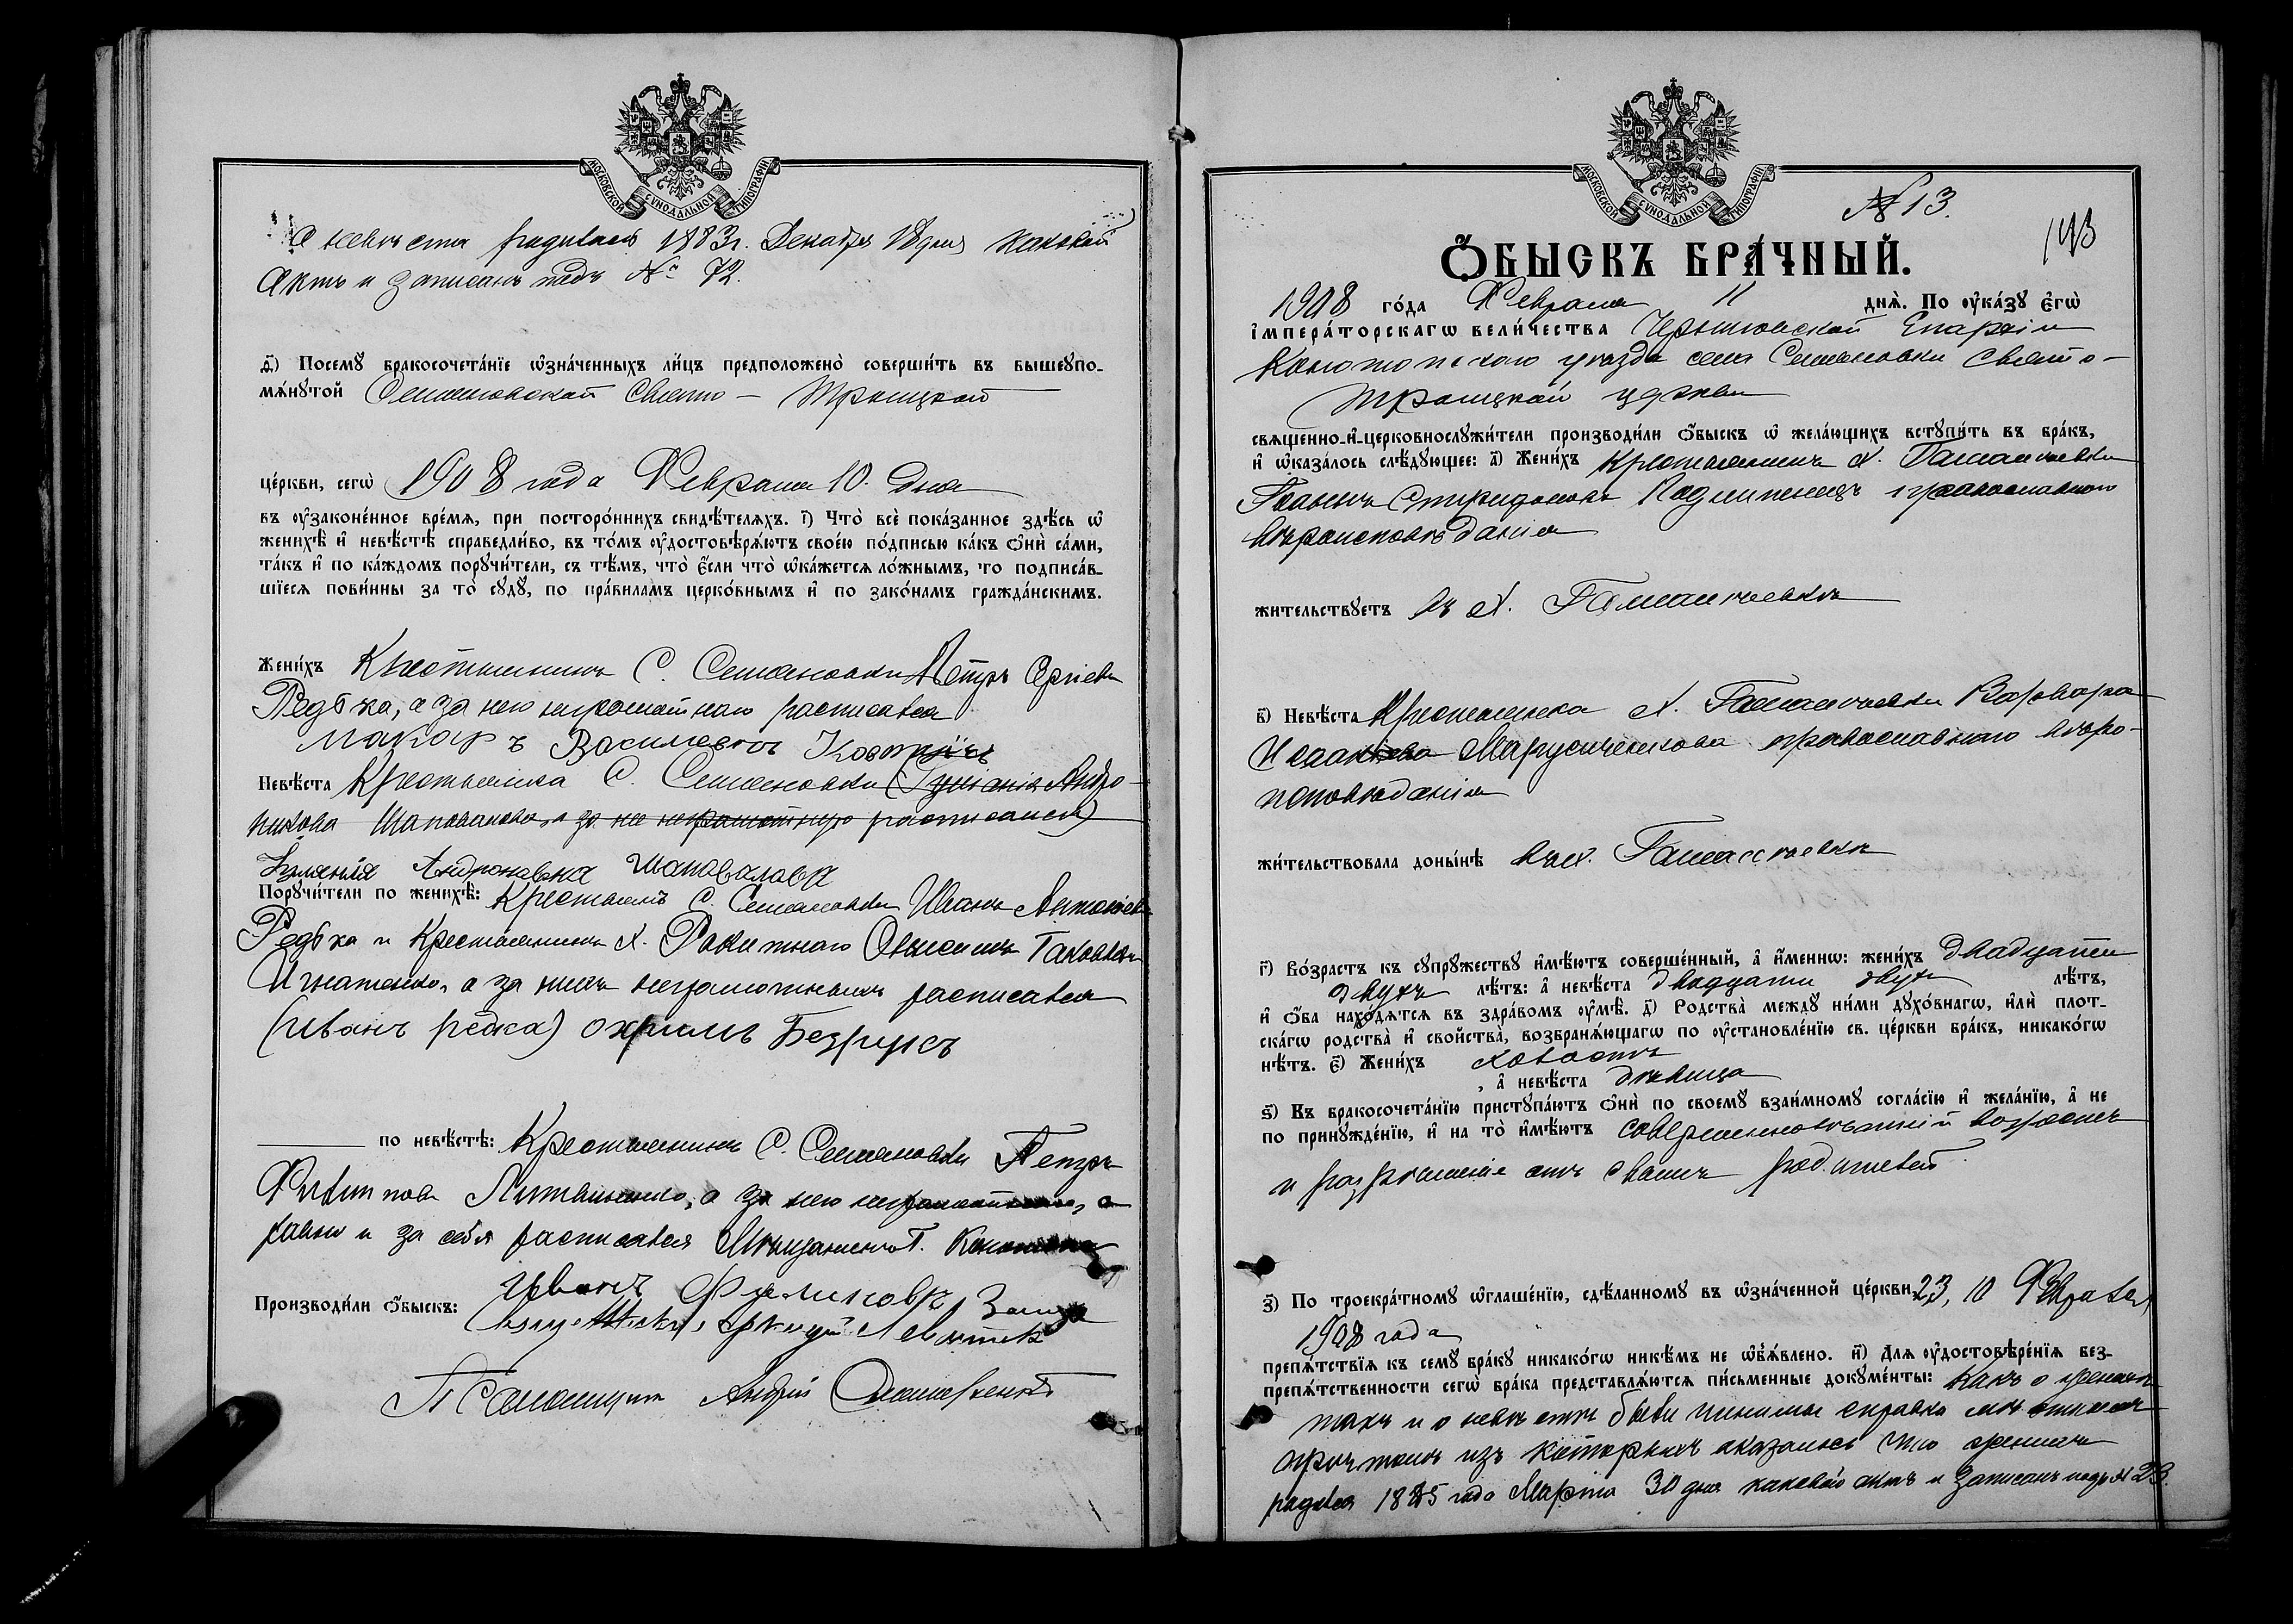 МОСКОВСКОЙ СѴНОДАЛЬНОЙ ТИПОГРАФІИ
А невѣста родилась 1883 г. Декабря 18 дня каковой
Актъ и записанъ подъ № 72.
д҃) Посемꙋ бракосочета́нїе ѡ҆зна́ченныхъ ли́цъ предположено̀ соверши́ть въ вышеꙋпо-
мѧ́нꙋтой Семеновской Свято – Троицкой
це́ркви, сегѡ̀ 1908 года Февраля 10. дня
въ ᲂу҆законе́нное вре́мѧ, при посторо́ннихъ свидѣ́телѧхъ. і҃) Что̀ всѐ пока́занное здѣ́сь ѡ҆
женихѣ̀ и҆ невѣ́стѣ справедли́во, въ то́мъ ᲂу҆достовѣрѧ́ютъ свое́ю по́дписью ка́къ ѻ҆нѝ са́ми,
та́къ и҆ по ка́ждомъ порꙋчи́тели, съ тѣ́мъ, что̀ є҆́сли что̀ ѡ҆ка́жетсѧ ло́жнымъ, то подписа́в-
шїесѧ пови́нны за то̀ сꙋдꙋ̀, по пра́виламъ церко́внымъ и҆ по зако́намъ гражда́нскимъ.
Жени́хъ Крестьянинъ С. Семеновки Петръ
Редька, а за него неграмотнаго расписался
Макаръ Васильевъ
Невѣ́ста Крестьянка С. Семеновки Андро-
никова Шаповалова, а за нее неграмотную расписался)
Андроновна Шаповалова
Порꙋчи́тели по женихѣ̀: Крестьянинъ С. Семеновки Иванъ Антоніевъ
Редька и Крестьянинъ Х. Ракитнаго Онисимъ Іаковлевъ
Игнатенко, а за нихъ неграмотныхъ расписался
(иванъ редка) охримъ Безрукъ
по невѣ́стѣ: Крестьянинъ С. Семеновки Петръ
Филиповъ Литвиненко, а за него неграмотнаго, а
равно и за себя расписался Мѣщанинъ Г. Конотопа
Производи́ли ѻ҆́быскъ: Иванъ
Андрій
№ 13.
193
МОСКОВСКОЙ СѴНОДАЛЬНОЙ ТИПОГРАФІИ
Ѻ҆БЫСКЪ БРА́ЧНЫЙ.
1908 го́да Февраля 11 днѧ̀. По ᲂу҆ка́зꙋ є҆гѡ̀
і҆мпера́торскагѡ вели́чества Черниговской Епархіи
Конотопскаго уезда села Семеновки Свято –
Троицкой церкви
свѧще́нно-и҆-церковнослꙋжи́тели производи́ли ѻ҆́быскъ ѡ҆ жела́ющихъ встꙋпи́ть въ бра́къ,
и҆ ѡ҆каза́лось слѣ́дꙋющее: а҃) Жени́хъ Крестьянинъ Х. Гамалѣевки
Спиридоновъ православнаго
вѣроисповѣданія
жи́тельствꙋетъ въ Х. Гамалѣевкѣ
в҃) Невѣ́ста Крестьянка Х. Гамалѣевки Варвара
Исаакіева Марусиченкова православнаго вѣро-
исповѣданія
жи́тельствовала доны́нѣ въ Х. Гамалѣевкѣ
г҃) Во́зрастъ къ сꙋпрꙋ́жествꙋ и҆мѣ́ютъ соверше́нный, а҆ и҆́меннѡ: жени́хъ двадцати
двухъ лѣ́тъ: а҆ невѣ́ста двадцати двухъ лѣ́тъ,
и҆ ѻ҆́ба нахо́дѧтсѧ въ здра́вомъ ᲂу҆мѣ̀. д҃) Родства̀ междꙋ̀ ни́ми дꙋхо́внагѡ, и҆лѝ плот-
ска́гѡ родства̀ и҆ сво́йства, возбранѧ́ющагѡ по ᲂу҆становле́нїю св. це́ркви бра́къ, никако́гѡ
нѣ́тъ. є҃) Жени́хъ холостъ
, а҆ невѣ́ста дѣвица
ѕ҃) Въ бракосочета́нїю пристꙋпа́ютъ ѻ҆нѝ по своемꙋ̀ взаи́мномꙋ согла́сїю и҆ жела́нїю, а҆ не
по принꙋжде́нїю, и҆ на то̀ и҆мѣ́ютъ совершеннолѣтній возрастъ
и разрѣшеніе отъ своихъ родителей
з҃) По троекра́тномꙋ ѡ҆глаше́нїю, сдѣ́ланномꙋ въ ѡ҆зна́ченной це́ркви 2, 3, 10 Февраля
1908 года
препѧ́тствїѧ къ семꙋ̀ бра́кꙋ никако́гѡ никѣ́мъ не ѡ҆б̾ѧ́влено. и҃) Длѧ ᲂу҆достовѣре́нїѧ без-
препѧ́тственности сегѡ̀ бра́ка представлѧ́ютсѧ пи́сьменные докꙋме́нты: Какъ о женихѣ
такъ и о невѣстѣ были чинимы справки
изъ которыхъ оказалось что женихъ
родился 1885 года Марта 30 дня каковой актъ и записанъ подъ № 23.